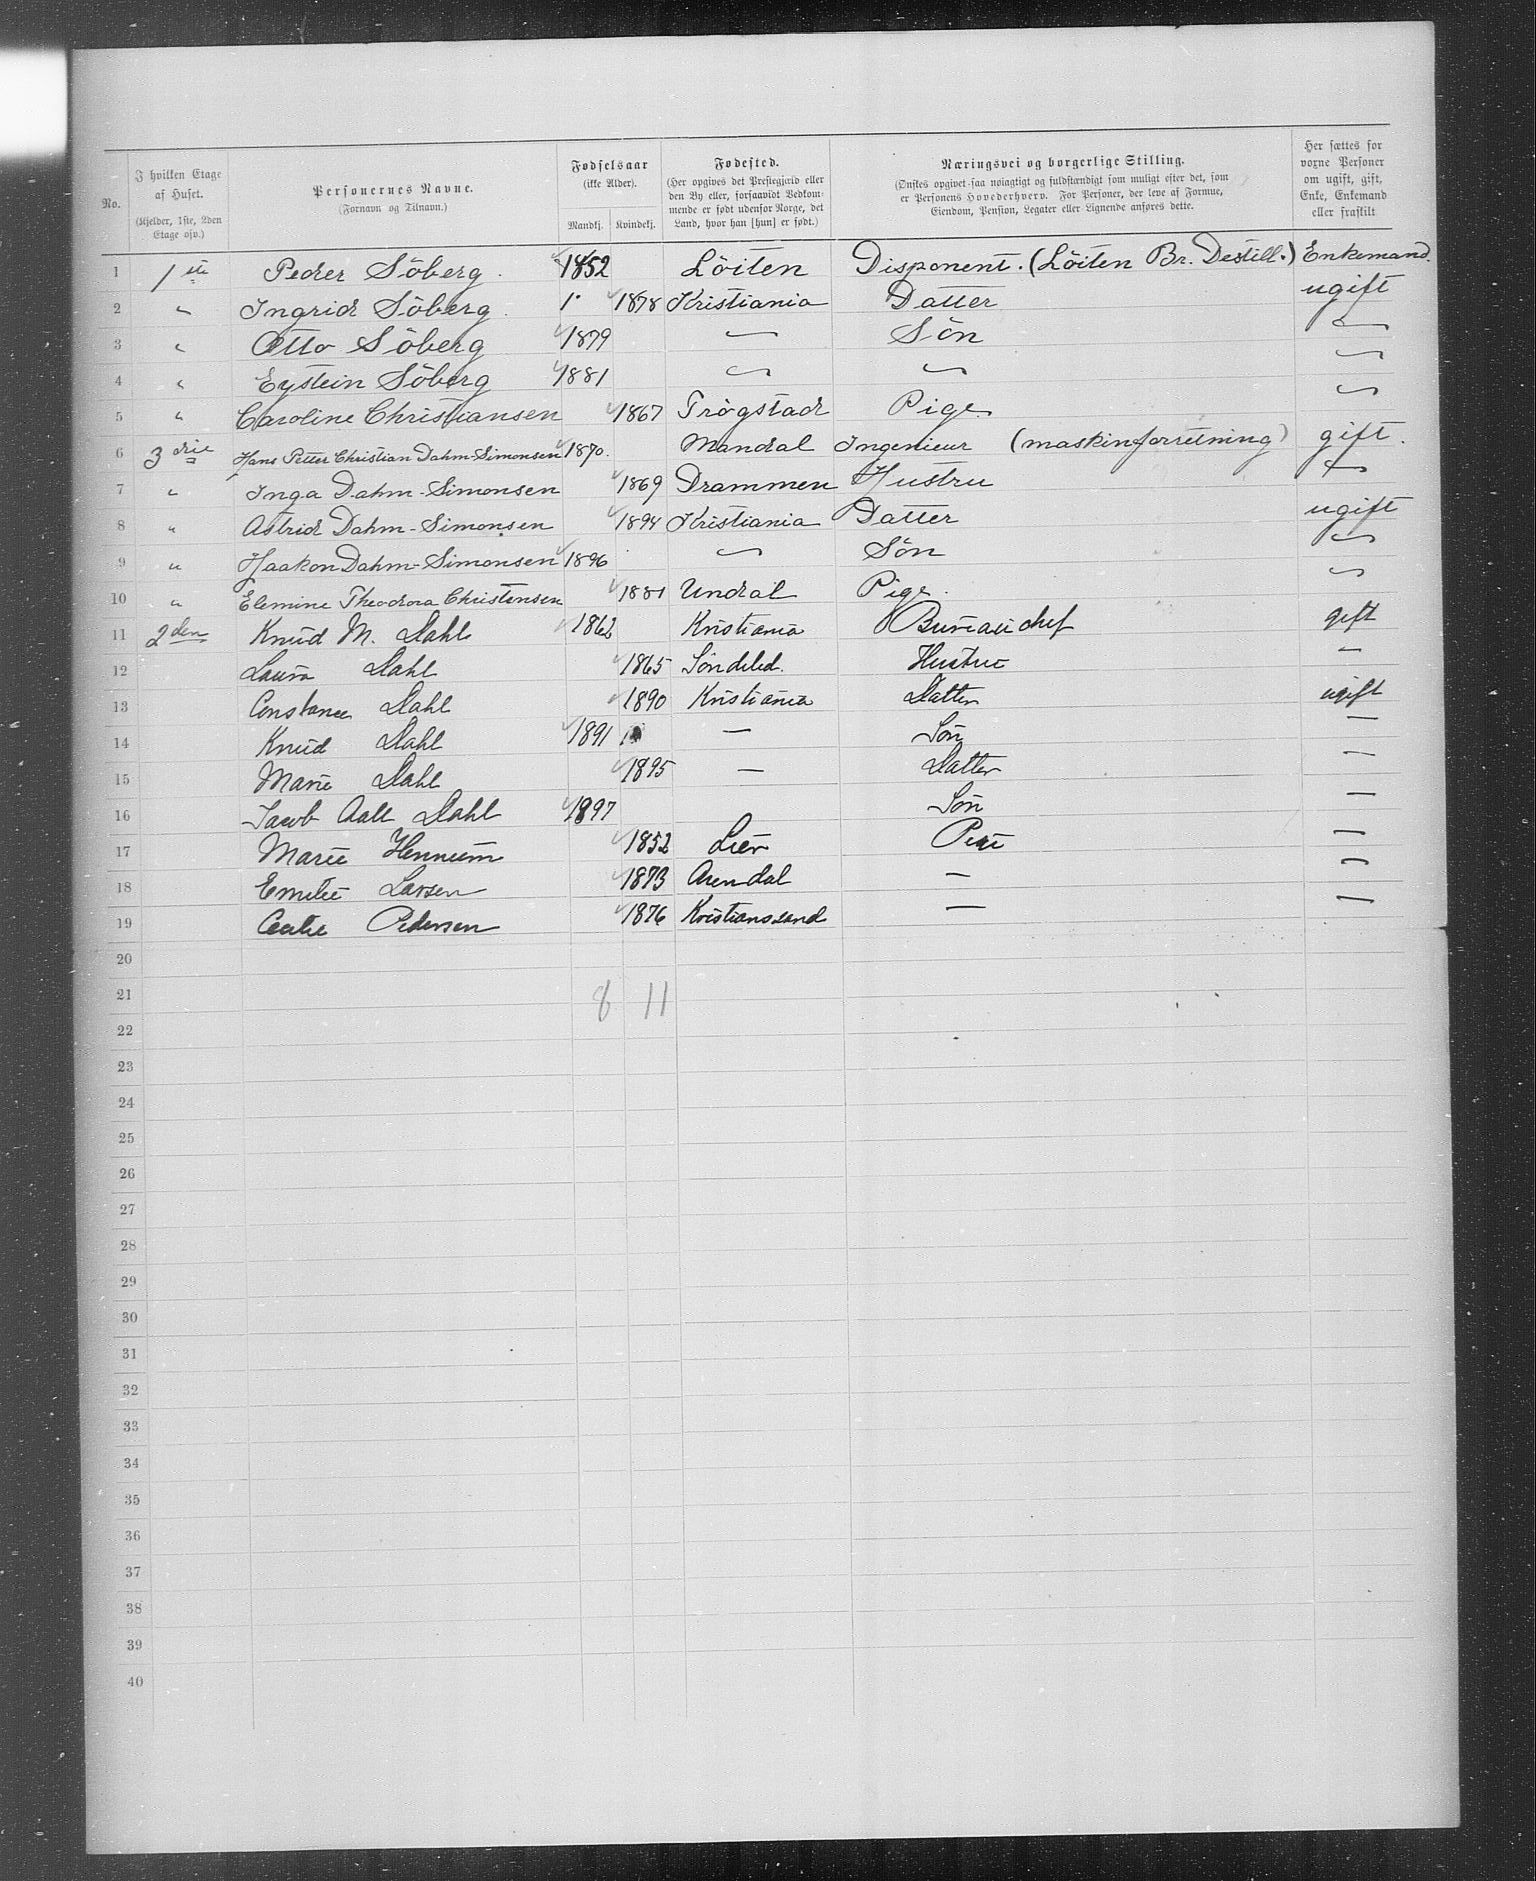 No. I hvilken Etage af Huset. (Kjelder, 1ste, 2den Etage osv.) Personernes Navne. (Fornavn og Tilnavn.) Fødselsaar (ikke Alder). Mandkj. Kvindekj. Fødested. (Her opgives det Prestegjæld eller den By eller, forsaavidt Vedkommende er født udenfor Norge, det Land, hvor han [hun] er født.) Næringsvei og borgerlige Stilling. (Ønskes opgivet saa nøiagtigt og fuldstændigt som muligt efter det, som er Personens Hovederhverv. For Personer, der leve af Formue, Eiendom, Pension, Legater eller Lignende anføres dette. Her sættes for voxne Personer om ugift, gift, Enke, Enkemand eller fraskilt
1 1ste Peder Söberg. 1852 Löiten Disponent. (Löiten Br. Destill.) Enkemand.
2 " Ingrid Söberg. 1878 Kristiania Datter ugift
3 " Otto Söberg 1879 — Sön —
4 " Eystein Söberg 1881 — — —
5 " Caroline Christiansen 1867 Trögstad Pige —
6 3die Hans Petter Christian Dahm-Simonsen 1870. Mandal Ingenieur (maskinforretning) gift.
7 " Inga Dahm-Simonsen 1869 Drammen Hustru —
8 " Astrid Dahm-Simonsen 1894 Kristiania Datter ugift
9 " Haakon Dahm-Simonsen 1896 — Sön —
10 " Elemine Theodora Christensen 1881 Undal Pige. —
11 2den Knud M. Dahl 1862 Kristiania Bureauchef gift
12 Laura Dahl 1865 Söndeled. Hustru —
13 Constance Dahl 1890 Kristiania Datter ugift
14 Knud Dahl 1891 — Sön —
15 Marie Dahl 1895 — Datter —
16 Jacob Aall Dahl 1897 Sön —
17 Marie Hennum 1852 Lier Pige —
18 Emilie Larsen 1873 Arendal — —
19 Cecilie Pedersen 1876 Kristianssand — —
20
21 8 11
22
23
24
25
26
27
28
29
30
31
32
33
34
35
36
37
38
39
40